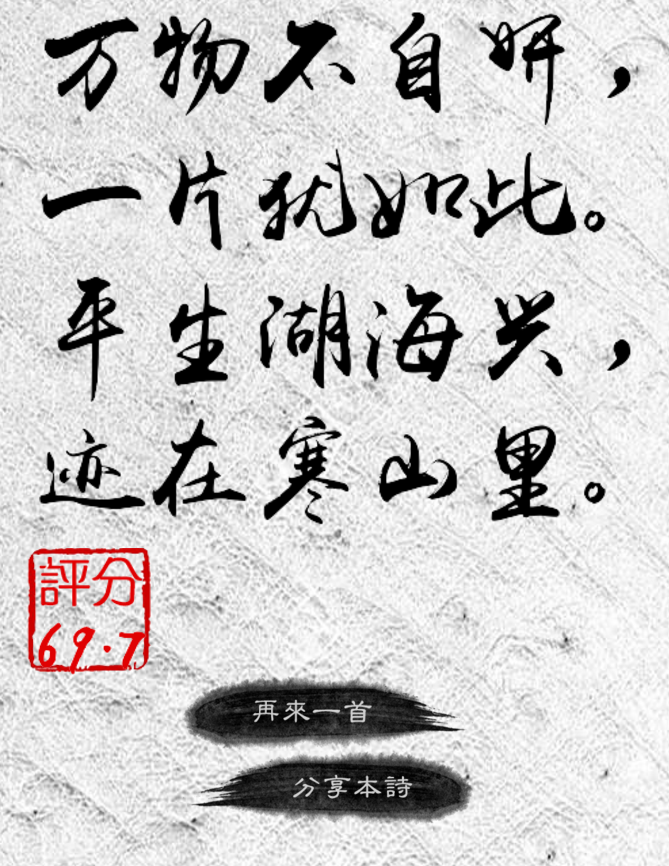 万物不自妍，
一片犹如此。
平生湖海兴，
迹在寒山里。
評分
69.7
再來一首
分享本詩